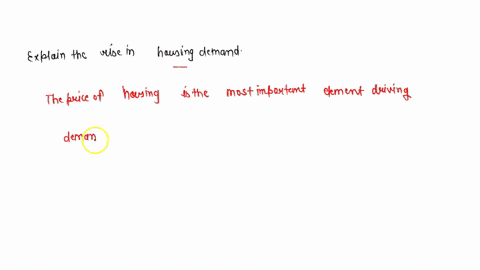 Explain the rise in housing demand.
The price of housing is the most important element driving
deman